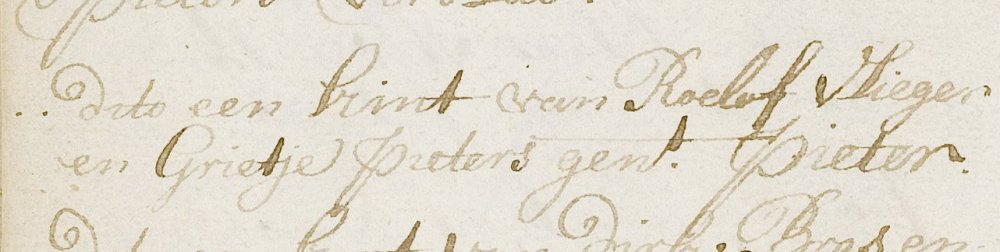 dito een kint van Roelof Vlieger
en Grietje Pieters gent. Pieter.